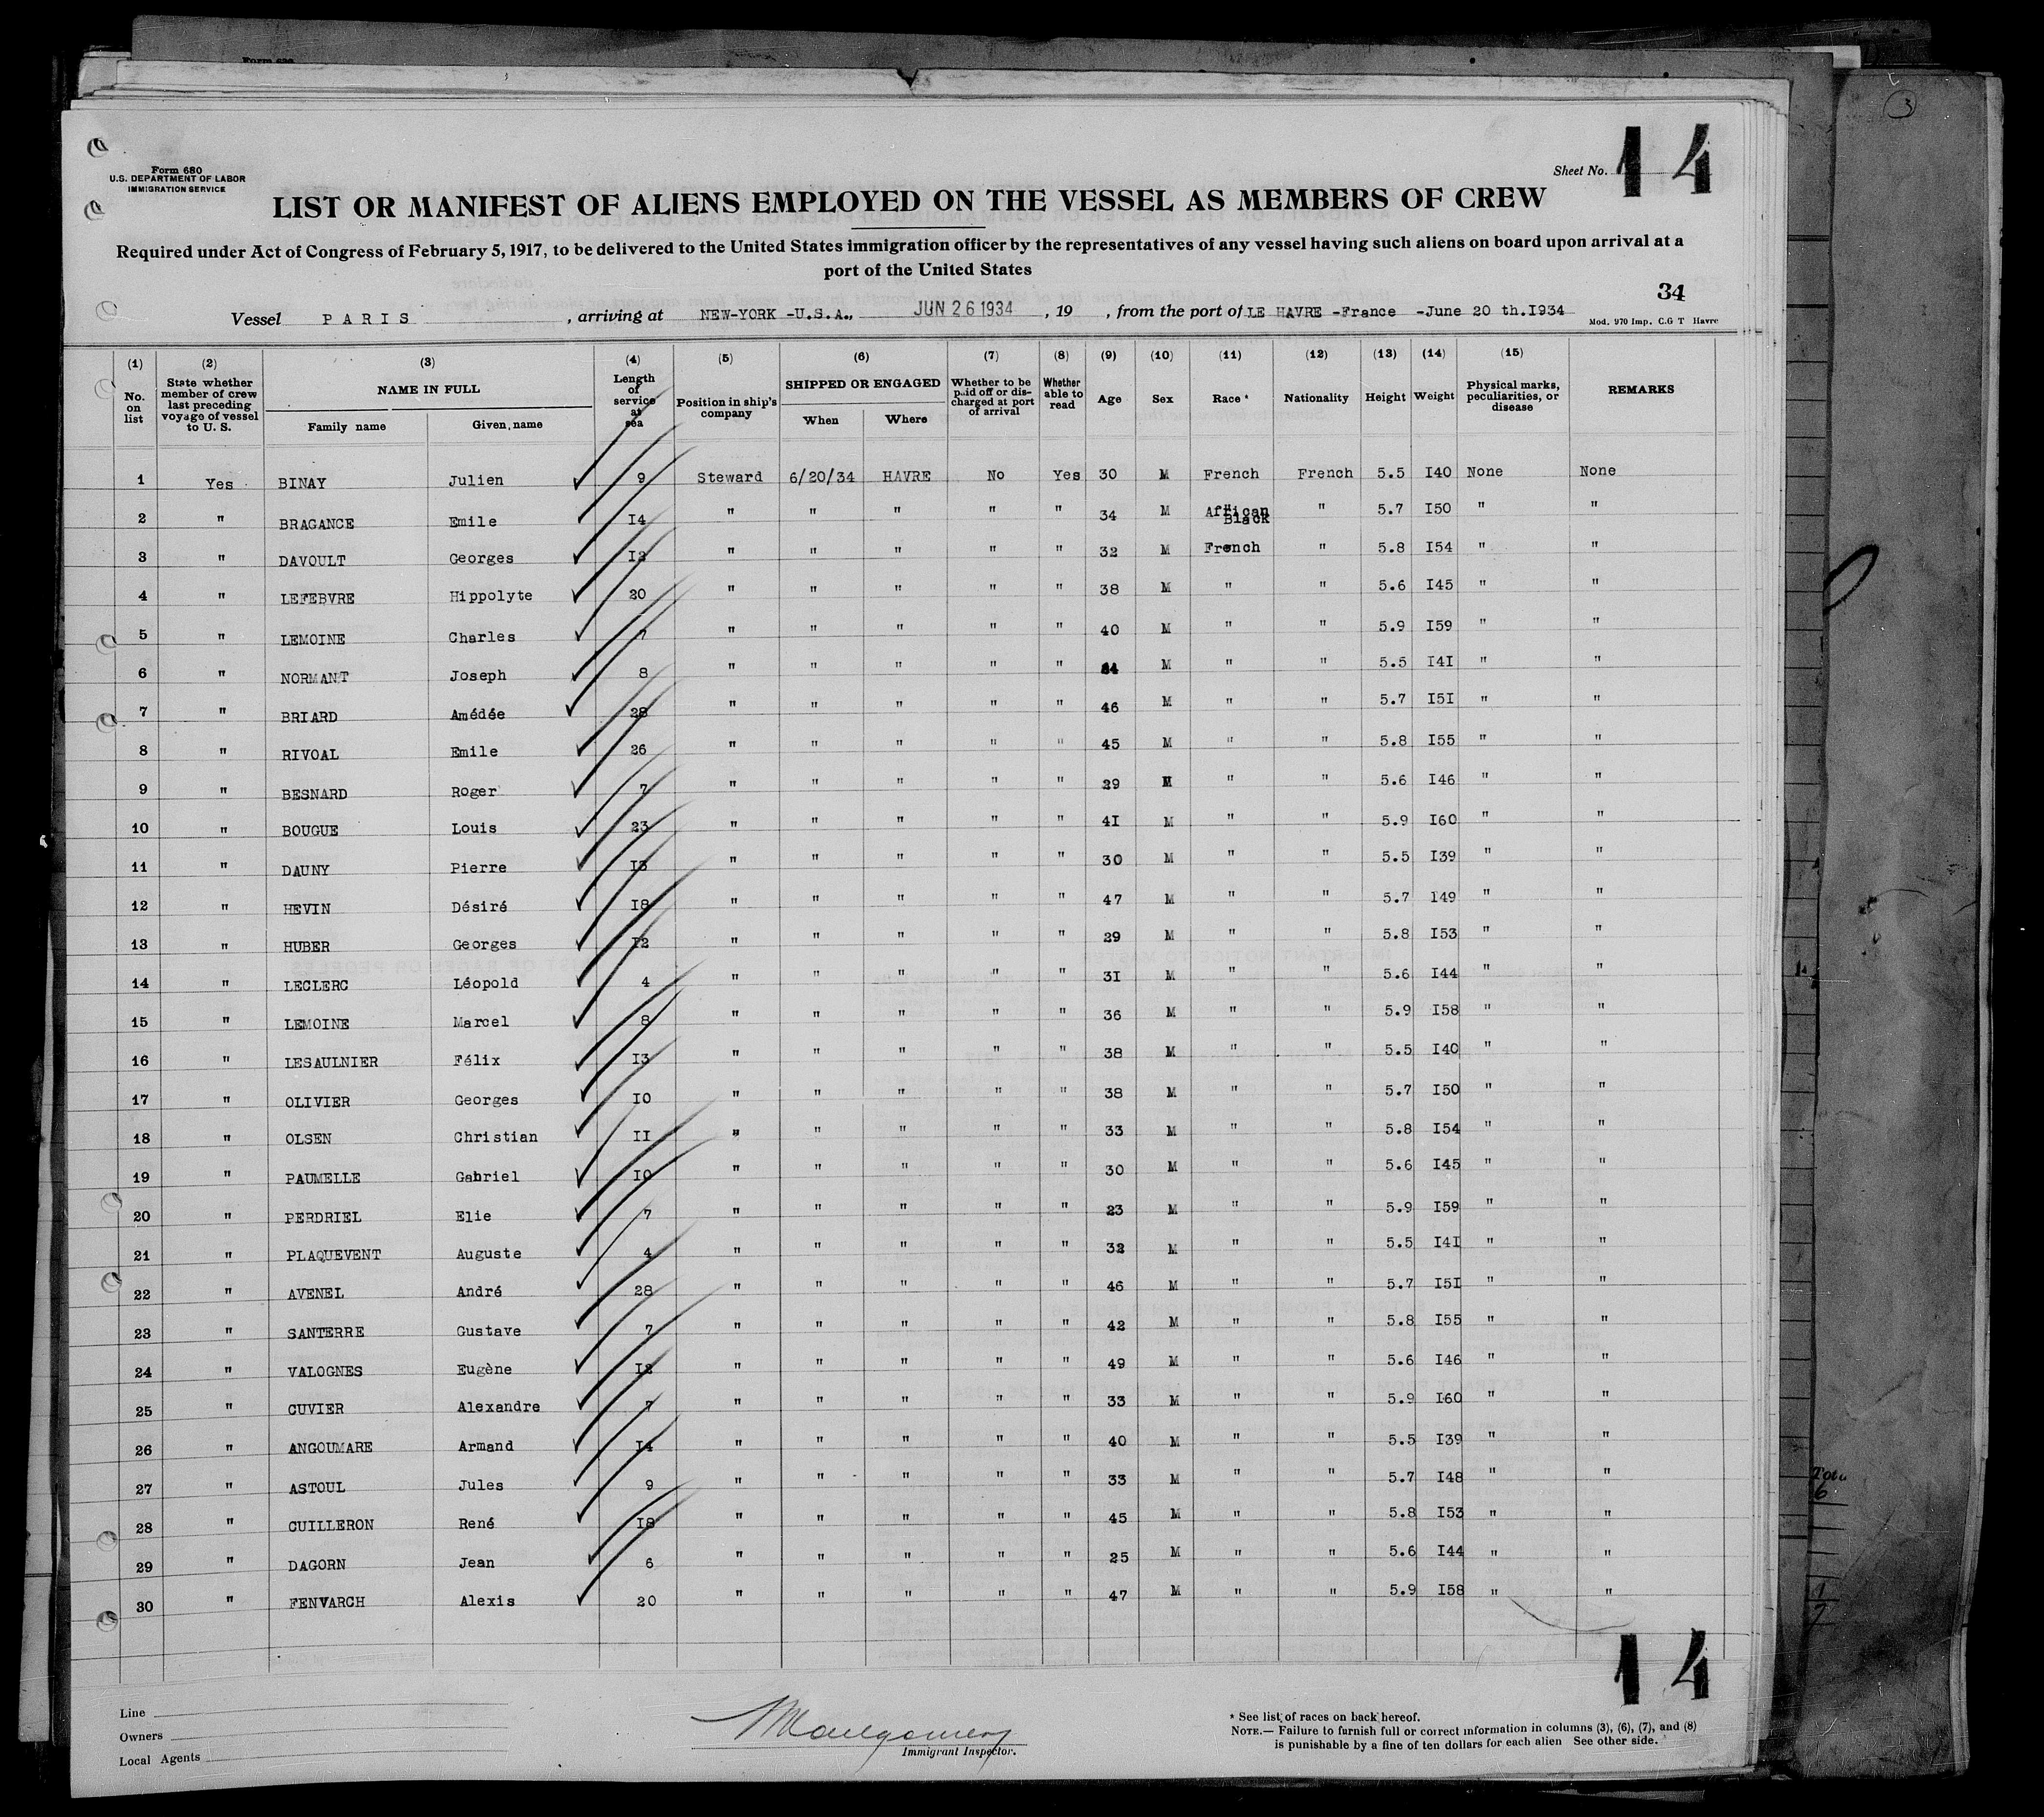 Form 680
U.S. DEPARTMENT OF LABOR
IMMIGRATION SERVICE
Sheet No. 14
LIST OR MANIFEST OF ALIENS EMPLOYED ON THE VESSEL AS MEMBERS OF CREW
Required under Act of Congress of February 5, 1917, to be delivered to the United States immigration officer by the representatives of any vessel having such aliens on board upon arrival at a
port of the United States
34
Vessel PARIS , arriving at NEW-YORK -U.S.A., JUN 26 1934 , 19 , from the port of LE HAVRE -France -June 20 th.I934
Mod. 970 Imp. C.G T Havre
(1) (2) (3) (4) (5) (6) (7) (8) (9) (10) (11) (12) (13) (14) (15)
No. on list State whether member of crew last preceding voyage of vessel to U. S. NAME IN FULL Family name Given name Length of service at sea Position in ship's company SHIPPED OR ENGAGED When Where Whether to be paid off or discharged at port of arrival Whether able to read Age Sex Race * Nationality Height Weight Physical marks, peculiarities, or disease REMARKS
1 Yes BINAY Julien 9 Steward 6/20/34 HAVRE No Yes 30 M French French 5.5 I40 None None
2 " BRAGANCE Emile I4 " " " " " 34 M African Black " 5.7 I50 " "
3 " DAVOULT Georges I2 " " " " " 32 M French " 5.8 I54 " "
4 " LEFEBVRE Hippolyte 20 " " " " " 38 M " " 5.6 I45 " "
5 " LEMOINE Charles 7 " " " " " 40 M " " 5.9 I59 " "
6 " NORMANT Joseph 8 " " " " " M " " 5.5 I4I " "
7 " BRIARD Amédée 28 " " " " " 46 M " " 5.7 I5I " "
8 " RIVOAL Emile 26 " " " " " 45 M " " 5.8 I55 " "
9 " BESNARD Roger 7 " " " " " 29 M " " 5.6 I46 " "
10 " BOUGUE Louis 23 " " " " " 4I M " " 5.9 I60 " "
11 " DAUNY Pierre I3 " " " " " 30 M " " 5.5 I39 " "
12 " HEVIN Désiré I8 " " " " " 47 M " " 5.7 I49 " "
13 " HUBER Georges I2 " " " " " 29 M " " 5.8 I53 " "
14 " LECLERC Léopold 4 " " " " " 3I M " " 5.6 I44 " "
15 " LEMOINE Marcel 8 " " " " " 36 M " " 5.9 I58 " "
16 " LESAULNIER Félix I3 " " " " " 38 M " " 5.5 I40 " "
17 " OLIVIER Georges IO " " " " " 38 M " " 5.7 I50 " "
18 " OLSEN Christian II " " " " " 33 M " " 5.8 I54 " "
19 " PAUMELLE Gabriel IO " " " " " 30 M " " 5.6 I45 " "
20 " PERDRIEL Elie 7 " " " " " 23 M " " 5.9 I59 " "
21 " PLAQUEVENT Auguste 4 " " " " " 32 M " " 5.5 I4I " "
22 " AVENEL André 28 " " " " " 46 M " " 5.7 I5I " "
23 " SANTERRE Gustave 7 " " " " " 42 M " " 5.8 I55 " "
24 " VALOGNES Eugène I2 " " " " " 49 M " " 5.6 I46 " "
25 " CUVIER Alexandre 7 " " " " " 33 M " " 5.9 I60 " "
26 " ANGOUMARE Armand I4 " " " " " 40 M " " 5.5 I39 " "
27 " ASTOUL Jules 9 " " " " " 33 M " " 5.7 I48 " "
28 " CUILLERON René I8 " " " " " 45 M " " 5.8 I53 " "
29 " DAGORN Jean 6 " " " " " 25 M " " 5.6 I44 " "
30 " FENVARCH Alexis 20 " " " " " 47 M " " 5.9 I58 " "
14
Line
Owners
Local Agents
Montgomery
Immigrant Inspector.
* See list of races on back hereof.
NOTE.— Failure to furnish full or correct information in columns (3), (6), (7), and (8)
is punishable by a fine of ten dollars for each alien See other side.